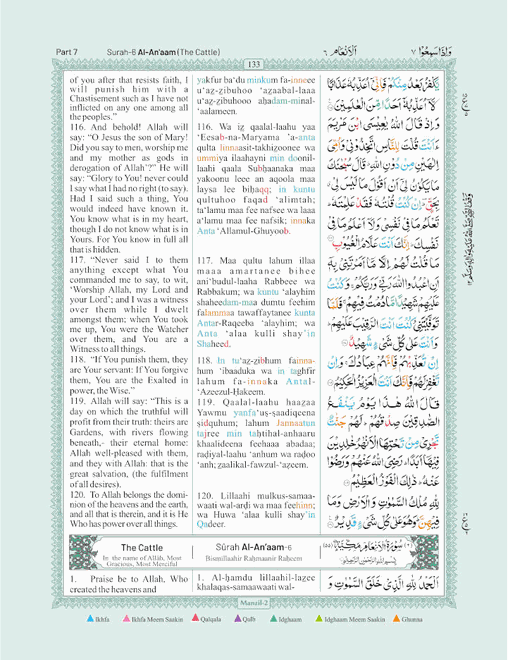 Part 7
Surah-6 Al-An'aam (The Cattle)
اَلْاَنْعَام ٦
وَاِذَا سَمِعُوْا ٧
133
of you after that resists faith, I
will punish him with a
Chastisement such as I have not
inflicted on any one among all
the peoples."
116. And behold! Allah will
say: "O Jesus the son of Mary!
Did you say to men, worship me
and my mother as gods in
derogation of Allah'?" He will
say: "Glory to You! never could
I say what I had no right (to say).
Had I said such a thing, You
would indeed have known it.
You know what is in my heart,
though I do not know what is in
Yours. For You know in full all
that is hidden.
117. "Never said I to them
anything except what You
commanded me to say, to wit,
'Worship Allah, my Lord and
your Lord'; and I was a witness
over them while I dwelt
amongst them; when You took
me up, You were the Watcher
over them, and You are a
Witness to all things.
118. "If You punish them, they
are Your servant: If You forgive
them, You are the Exalted in
power, the Wise."
119. Allah will say: "This is a
day on which the truthful will
profit from their truth: theirs are
Gardens, with rivers flowing
beneath,- their eternal home:
Allah well-pleased with them,
and they with Allah: that is the
great salvation, (the fulfilment
of all desires).
120. To Allah belongs the domi-
nion of the heavens and the earth,
and all that is therein, and it is He
Who has power over all things.
yakfur ba'du minkum fa-inneee
u'az-zibuhoo 'azaabal-laaa
u'az-zibuhooo aḥadam-minal-
'aalameen.
116. Wa iẓ qaalal-laahu yaa
'Eesab-na-Maryama 'a-anta
qulta linnaasit-takhizoonee wa
ummiya ilaahayni min doonil-
laahi qaala Subḥaanaka maa
yakoonu lee an aqoola maa
laysa lee biḥaqq; in kuntu
qultuhoo faqad 'alimtah;
ta'lamu maa fee nafsee wa laaa
a'lamu maa fee nafsik; innaka
Anta 'Allamul-Ghuyoob.
117. Maa qultu lahum illaa
maaa amartanee bihee
ani'budul-laaha Rabbeee wa
Rabbakum; wa kuntu 'alayhim
shaheedam-maa dumtu feehim
falammaa tawaffaytanee kunta
Antar-Raqeeba 'alayhim; wa
Anta 'alaa kulli shay'in
Shaheed.
118. In tu'az-zibhum fainna-
hum 'ibaaduka wa in taghfir
lahum fa-innaka Antal-
'Azeezul-Ḥakeem.
119. Qaalal-laahu haazaa
Yawmu yanfa'uṣ-ṣaadiqeena
ṣidquhum; lahum Jannaatun
tajree min taḥtihal-anhaaru
khaalideena feehaaa abadaa;
raḍiyal-laahu 'anhum wa raḍoo
'anh; zaalikal-fawzul-'azeem.
120. Lillaahi mulkus-samaa-
waati wal-arḍi wa maa feehinn;
wa Huwa 'alaa kulli shay'in
Qadeer.
يَّكْفُرْ بَعْدُ مِنْكُمْ فَاِنِّيْٓ اُعَذِّبُهٗ عَذَابًا
لَّآ اُعَذِّبُهٗٓ اَحَدًا مِّنَ الْعٰلَمِيْنَ
وَاِذْ قَالَ اللّٰهُ يٰعِيْسَى ابْنَ مَرْيَمَ
ءَاَنْتَ قُلْتَ لِلنَّاسِ اتَّخِذُوْنِيْ وَاُمِّيَ
اِلٰهَيْنِ مِنْ دُوْنِ اللّٰهِ ؕ قَالَ سُبْحٰنَكَ
مَا يَكُوْنُ لِيْٓ اَنْ اَقُوْلَ مَا لَيْسَ لِيْ ۗ
بِحَقٍّ ؕ اِنْ كُنْتُ قُلْتُهٗ فَقَدْ عَلِمْتَهٗ ؕ
تَعْلَمُ مَا فِيْ نَفْسِيْ وَلَآ اَعْلَمُ مَا فِيْ
نَفْسِكَ ؕ اِنَّكَ اَنْتَ عَلَّامُ الْغُيُوْبِ
مَا قُلْتُ لَهُمْ اِلَّا مَآ اَمَرْتَنِيْ بِهٖٓ
اَنِ اعْبُدُوا اللّٰهَ رَبِّيْ وَرَبَّكُمْ ۚ وَكُنْتُ
عَلَيْهِمْ شَهِيْدًا مَّا دُمْتُ فِيْهِمْ ۚ فَلَمَّا
تَوَفَّيْتَنِيْ كُنْتَ اَنْتَ الرَّقِيْبَ عَلَيْهِمْ ؕ
وَاَنْتَ عَلٰى كُلِّ شَيْءٍ شَهِيْدٌ
اِنْ تُعَذِّبْهُمْ فَاِنَّهُمْ عِبَادُكَ ۚ وَاِنْ
تَغْفِرْ لَهُمْ فَاِنَّكَ اَنْتَ الْعَزِيْزُ الْحَكِيْمُ
قَالَ اللّٰهُ هٰذَا يَوْمُ يَنْفَعُ
الصّٰدِقِيْنَ صِدْقُهُمْ ؕ لَهُمْ جَنّٰتٌ
تَجْرِيْ مِنْ تَحْتِهَا الْاَنْهٰرُ خٰلِدِيْنَ
فِيْهَآ اَبَدًا ؕ رَضِيَ اللّٰهُ عَنْهُمْ وَرَضُوْا
عَنْهُ ؕ ذٰلِكَ الْفَوْزُ الْعَظِيْمُ
لِلّٰهِ مُلْكُ السَّمٰوٰتِ وَالْاَرْضِ وَمَا
فِيْهِنَّ ؕ وَهُوَ عَلٰى كُلِّ شَيْءٍ قَدِيْرٌ
The Cattle
In the name of Allah, Most
Gracious, Most Merciful
Sūrah Al-An'aam-6
Bismillaahir Raḥmaanir Raḥeem
سُوْرَةُ الْاَنْعَامِ مَكِّيَّةٌ
بِسْمِ اللّٰهِ الرَّحْمٰنِ الرَّحِيْمِ
1. Praise be to Allah, Who
created the heavens and
1. Al-ḥamdu lillaahil-lazee
khalaqas-samaawaati wal-
اَلْحَمْدُ لِلّٰهِ الَّذِيْ خَلَقَ السَّمٰوٰتِ وَ
Manzil-2
Ikhfa
Ikhfa Meem Saakin
Qalqala
Qalb
Idghaam
Idghaam Meem Saakin
Ghunna